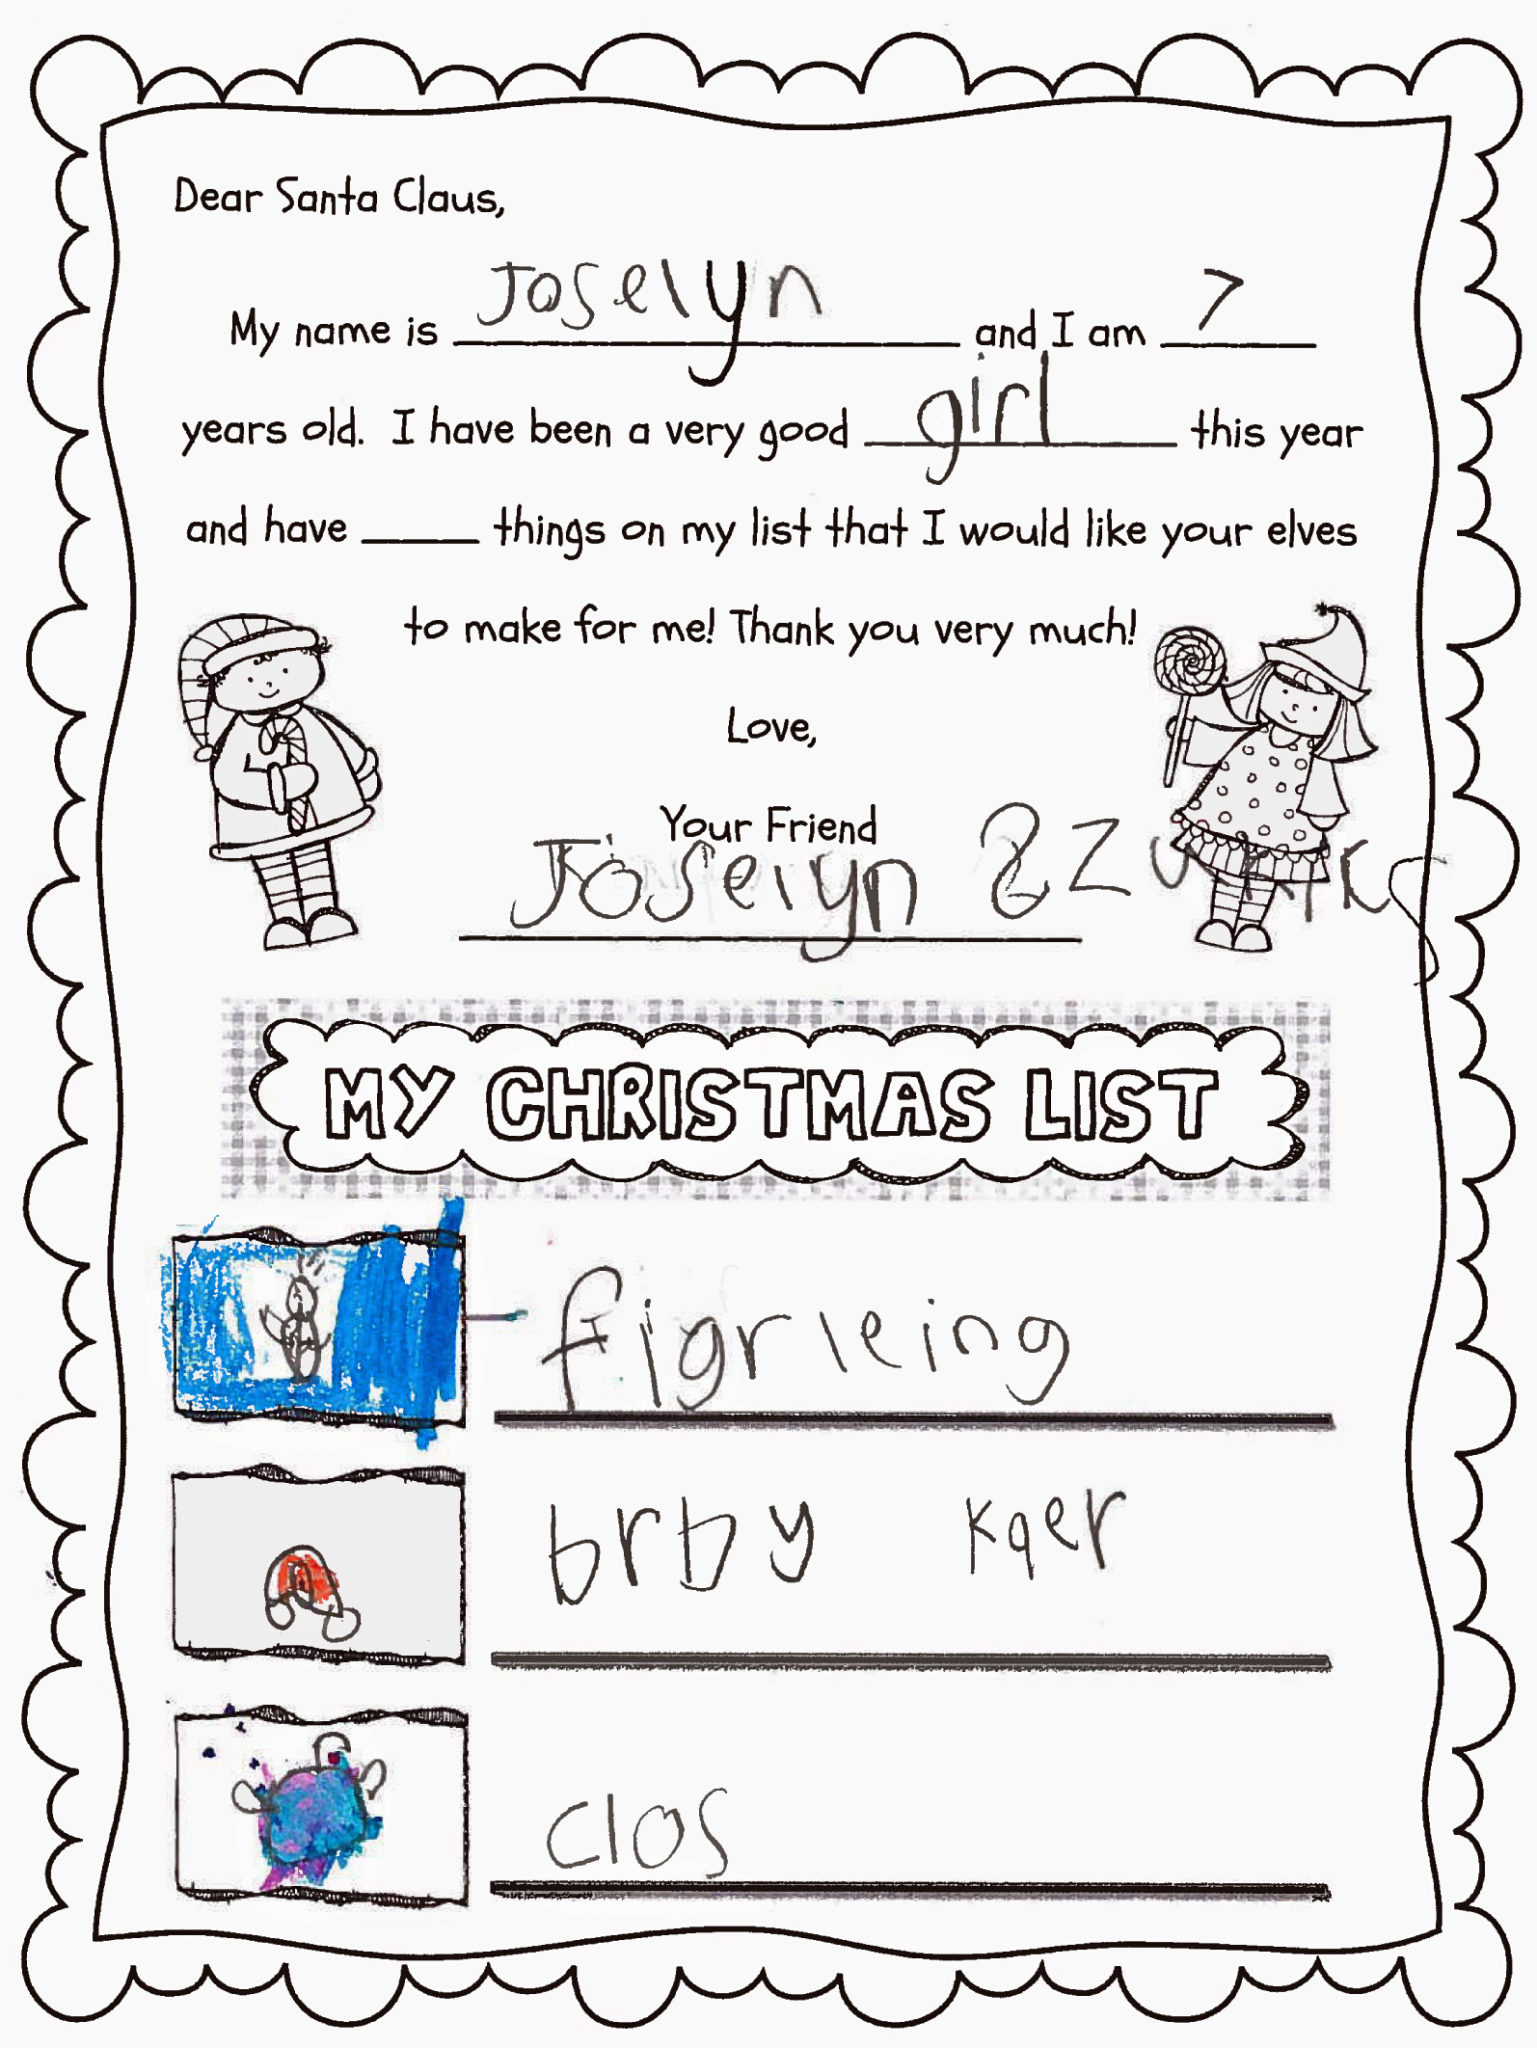 Dear Santa Claus,
My name is Joselyn and I am 7
years old. I have been a very good girl this year
and have ____ things on my list that I would like your elves
to make for me! Thank you very much!
Love,
Your Friend
Joselyn
MY CHRISTMAS LIST
figrleing
brby Kqer
clos